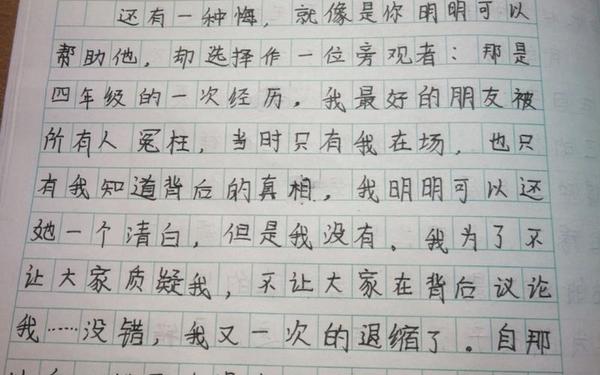 还有一种悔，就像是你明明可以
帮助他，却选择作一位旁观者：那是
四年级的一次经历，我最好的朋友被
所有人冤枉，当时只有我在场，也只
有我知道背后的真相，我明明可以还
她一个清白，但是我没有。我为了不
让大家质疑我，不让大家在背后议论
我……没错，我又一次的退缩了。自那